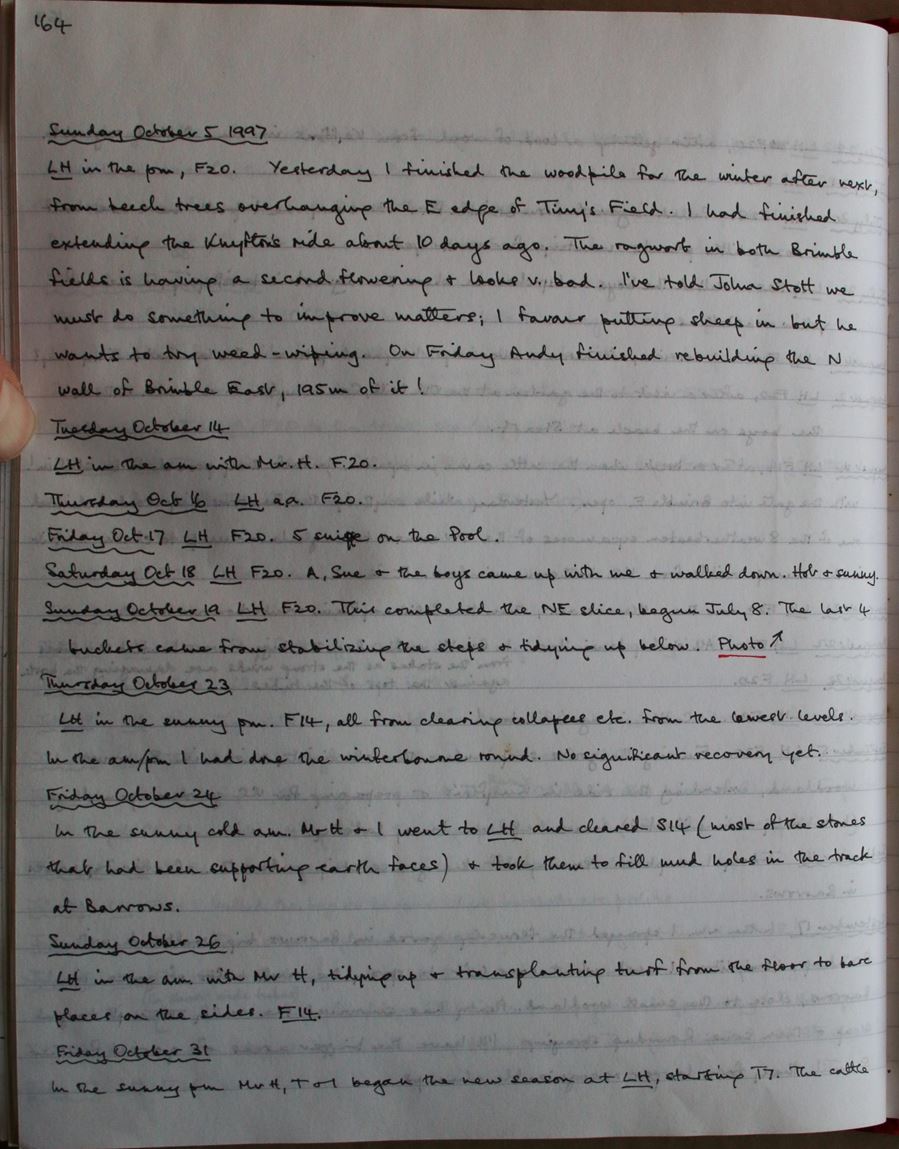 164
Sunday October 5 1997
LH in the pm, F20. Yesterday I finished the woodpile for the winter after next,
from beech trees overhanging the E edge of Timy's Field. I had finished
extending the Knyfton's ride about 10 days ago. The ragwort in both Brimble
fields is having a second flowering & looks v. bad. I've told John Stott we
must do something to improve matters; I favour putting sheep in but he
wants to try weed-wiping. On Friday Andy finished rebuilding the N
wall of Brimble East, 195m of it!
Tuesday October 14
LH in the am with Mr. H. F.20.
Thursday Oct 16 LH F20.
Friday Oct 17 LH F20. 5 snipe on the Pool.
Saturday Oct 18 LH F20. A, Sue & the boys came up with me & walked down. Hot & sunny.
Sunday October 19 LH F20. This completed the NE slice, begun July 8. The last 4
buckets came from stabilizing the steps & tidying up below. Photo ↗
Thursday October 23
LH in the sunny pm. F14, all from clearing collapses etc. from the lowest levels.
In the am/pm I had done the winterbourne round. No significant recovery yet.
Friday October 24
In the sunny cold am. Mr H & I went to LH and cleared S14 (most of the stones
that had been supporting earth faces) & took them to fill mud holes in the track
at Barrows.
Sunday October 26
LH in the am with Mr H, tidying up & transplanting turf from the floor to bare
places on the sides. F14.
Friday October 31
In the sunny pm Mr H, T & I began the new season at LH, starting T7. The cattle